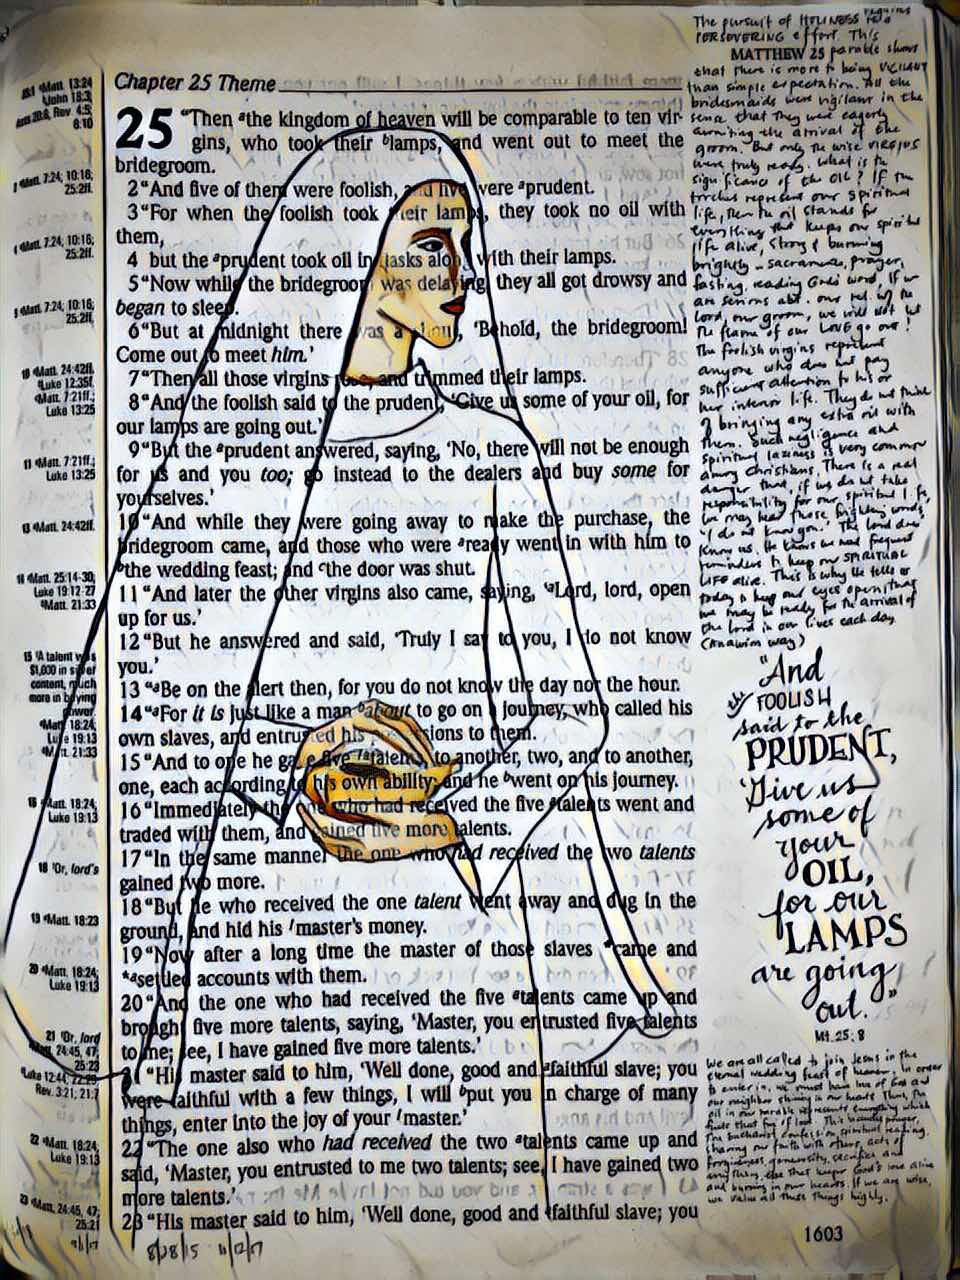 Chapter 25 Theme
25 "Then ᵃthe kingdom of heaven will be comparable to ten vir-
gins, who took their ᵇlamps, and went out to meet the
bridegroom.
2 "And five of them were foolish, and five were ᵃprudent.
3 "For when the foolish took their lamps, they took no oil with
them,
4 but the ᵃprudent took oil in flasks along with their lamps.
5 "Now while the bridegroom was delaying, they all got drowsy and
began to sleep.
6 "But at midnight there was a shout, 'Behold, the bridegroom!
Come out to meet him.'
7 "Then all those virgins rose, and trimmed their lamps.
8 "And the foolish said to the prudent, 'Give us some of your oil, for
our lamps are going out.'
9 "But the ᵃprudent answered, saying, 'No, there will not be enough
for us and you too; go instead to the dealers and buy some for
yourselves.'
10 "And while they were going away to make the purchase, the
bridegroom came, and those who were ᵃready went in with him to
ᵇthe wedding feast; and ᶜthe door was shut.
11 "And later the other virgins also came, saying, 'ᵃLord, lord, open
up for us.'
12 "But he answered and said, 'Truly I say to you, I do not know
you.'
13 "ᵃBe on the alert then, for you do not know the day nor the hour.
14 "ᵃFor it is just like a man ᵇabout to go on a journey, who called his
own slaves, and entrusted his possessions to them.
15 "And to one he gave five ᵃtalents, to another, two, and to another,
one, each according to his own ability; and he ᵇwent on his journey.
16 "Immediately the one who had received the five ᵃtalents went and
traded with them, and gained five more talents.
17 "In the same manner the one who had received the two talents
gained two more.
18 "But he who received the one talent went away and dug in the
ground, and hid his ˡmaster's money.
19 "Now after a long time the master of those slaves *came and
*ᵃsettled accounts with them.
20 "And the one who had received the five ᵃtalents came up and
brought five more talents, saying, 'Master, you entrusted five talents
to me; see, I have gained five more talents.'
21 "His master said to him, 'Well done, good and ᵃfaithful slave; you
were faithful with a few things, I will ᵇput you in charge of many
things, enter into the joy of your ˡmaster.'
22 "The one also who had received the two ᵃtalents came up and
said, 'Master, you entrusted to me two talents; see, I have gained two
more talents.'
23 "His master said to him, 'Well done, good and ᵃfaithful slave; you
Matt. 13:24
John 18:3
Rev 4:5;
8:10
Matt. 7:24; 10:16;
25:2ff.
Matt. 7:24, 10:16;
25:2ff.
Matt. 7:24, 10:16;
25:2ff.
10 Matt. 24:42ff.
Luke 12:35f.
Matt. 7:21ff.;
Luke 13:25
11 Matt. 7:21ff.;
Luke 13:25
13 Matt. 24:42ff.
14 Matt. 25:14-30;
Luke 19:12-27
Matt. 21:33
15 A talent was
$1,000 in silver
content, much
more in buying
power.
Matt. 18:24;
Luke 19:13
Matt. 21:33
16 Matt. 18:24;
Luke 19:13
18 'Or, lord's
19 Matt. 18:23
20 Matt. 18:24;
Luke 19:13
21 'Or, lord
Matt. 24:45, 47;
25:23
Luke 12:44; 22:29
Rev. 3:21; 21:7
22 Matt. 18:24;
Luke 19:13
23 Matt. 24:45, 47;
25:21
The pursuit of HOLINESS requires
PERSEVERING effort. This
MATTHEW 25 parable shows
that there is more to being VIGILANT
than simple expectation. All the
bridesmaids were vigilant in the
sense that they were eagerly
awaiting the arrival of the
groom. But only the wise VIRGINS
were truly ready. What is the
significance of the OIL? If the
torches represent our spiritual
life, then the oil stands for
everything that keeps our spiritual
life alive, strong & burning
brightly – sacraments, prayer,
fasting, reading God's word. If we
are serious abt. our rel. w/ the
Lord, our groom, we will not let
the flame of our LOVE go out!
The foolish virgins represent
anyone who does not pay
sufficient attention to his or
her interior life. They do not think
of bringing any extra oil with
them. Such negligence and
spiritual laziness is very common
among Christians. There is a real
danger that, if we do not take
responsibility for our spiritual life,
we may hear those frightening words,
"I do not know you." The Lord does
know us. He knows we need frequent
reminders to keep our SPIRITUAL
LIFE alive. This is why He tells us
today to keep our eyes open, that
we may be ready for the arrival of
the Lord in our lives each day.
(Anawim way)
"And
the FOOLISH
said to the
PRUDENT,
'Give us
some of
your
OIL,
for our
LAMPS
are going
out."
Mt. 25:8
We are all called to join Jesus in the
eternal wedding feast of heaven. In order
to enter in, we must have love of God and
our neighbor shining in our hearts. Thus, the
oil in our parable represents everything which
fuels that fire of love. This includes prayer,
the Eucharist, confession, spiritual reading,
sharing our faith with others, acts of
forgiveness, generosity, sacrifice and
anything else that keeps God's love alive
and burning in our hearts. If we are wise,
we value all these things highly.
1603
8/28/15 11/12/17